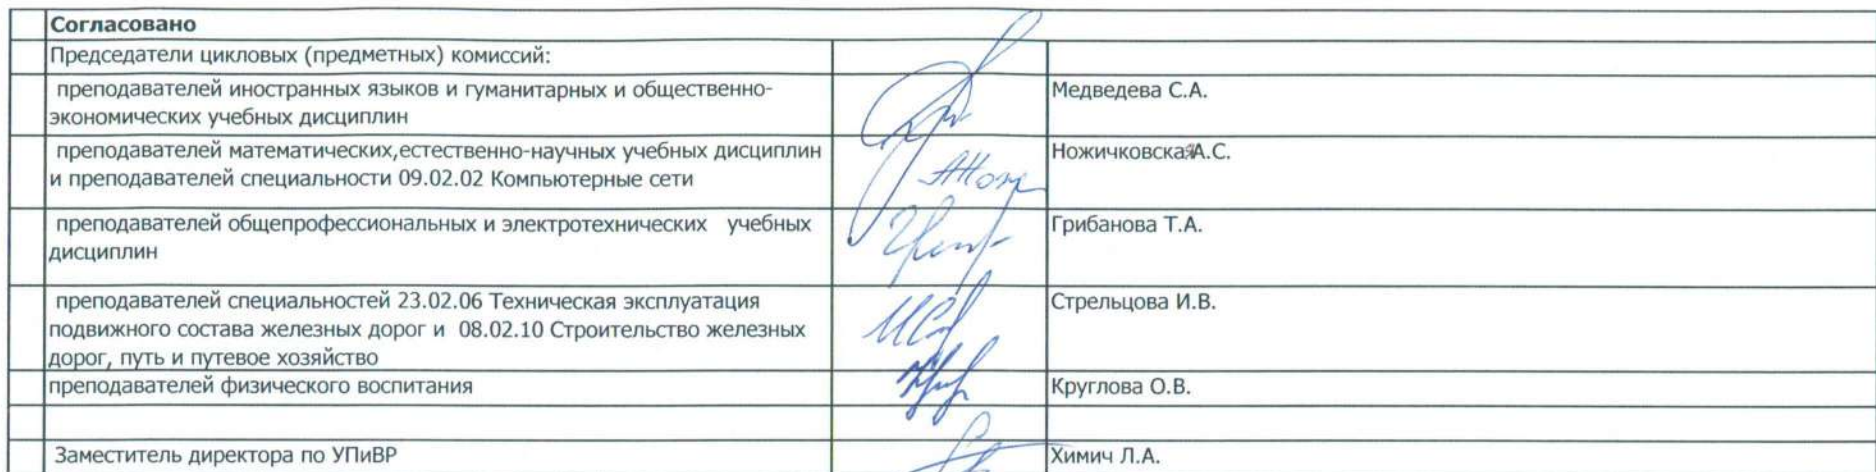 Согласовано
Председатели цикловых (предметных) комиссий:
преподавателей иностранных языков и гуманитарных и общественно-
экономических учебных дисциплин
Медведева С.А.
преподавателей математических,естественно-научных учебных дисциплин
и преподавателей специальности 09.02.02 Компьютерные сети
НожичковскаяА.С.
преподавателей общепрофессиональных и электротехнических учебных
дисциплин
Грибанова Т.А.
преподавателей специальностей 23.02.06 Техническая эксплуатация
подвижного состава железных дорог и 08.02.10 Строительство железных
дорог, путь и путевое хозяйство
Стрельцова И.В.
преподавателей физического воспитания
Круглова О.В.
Заместитель директора по УПиВР
Химич Л.А.